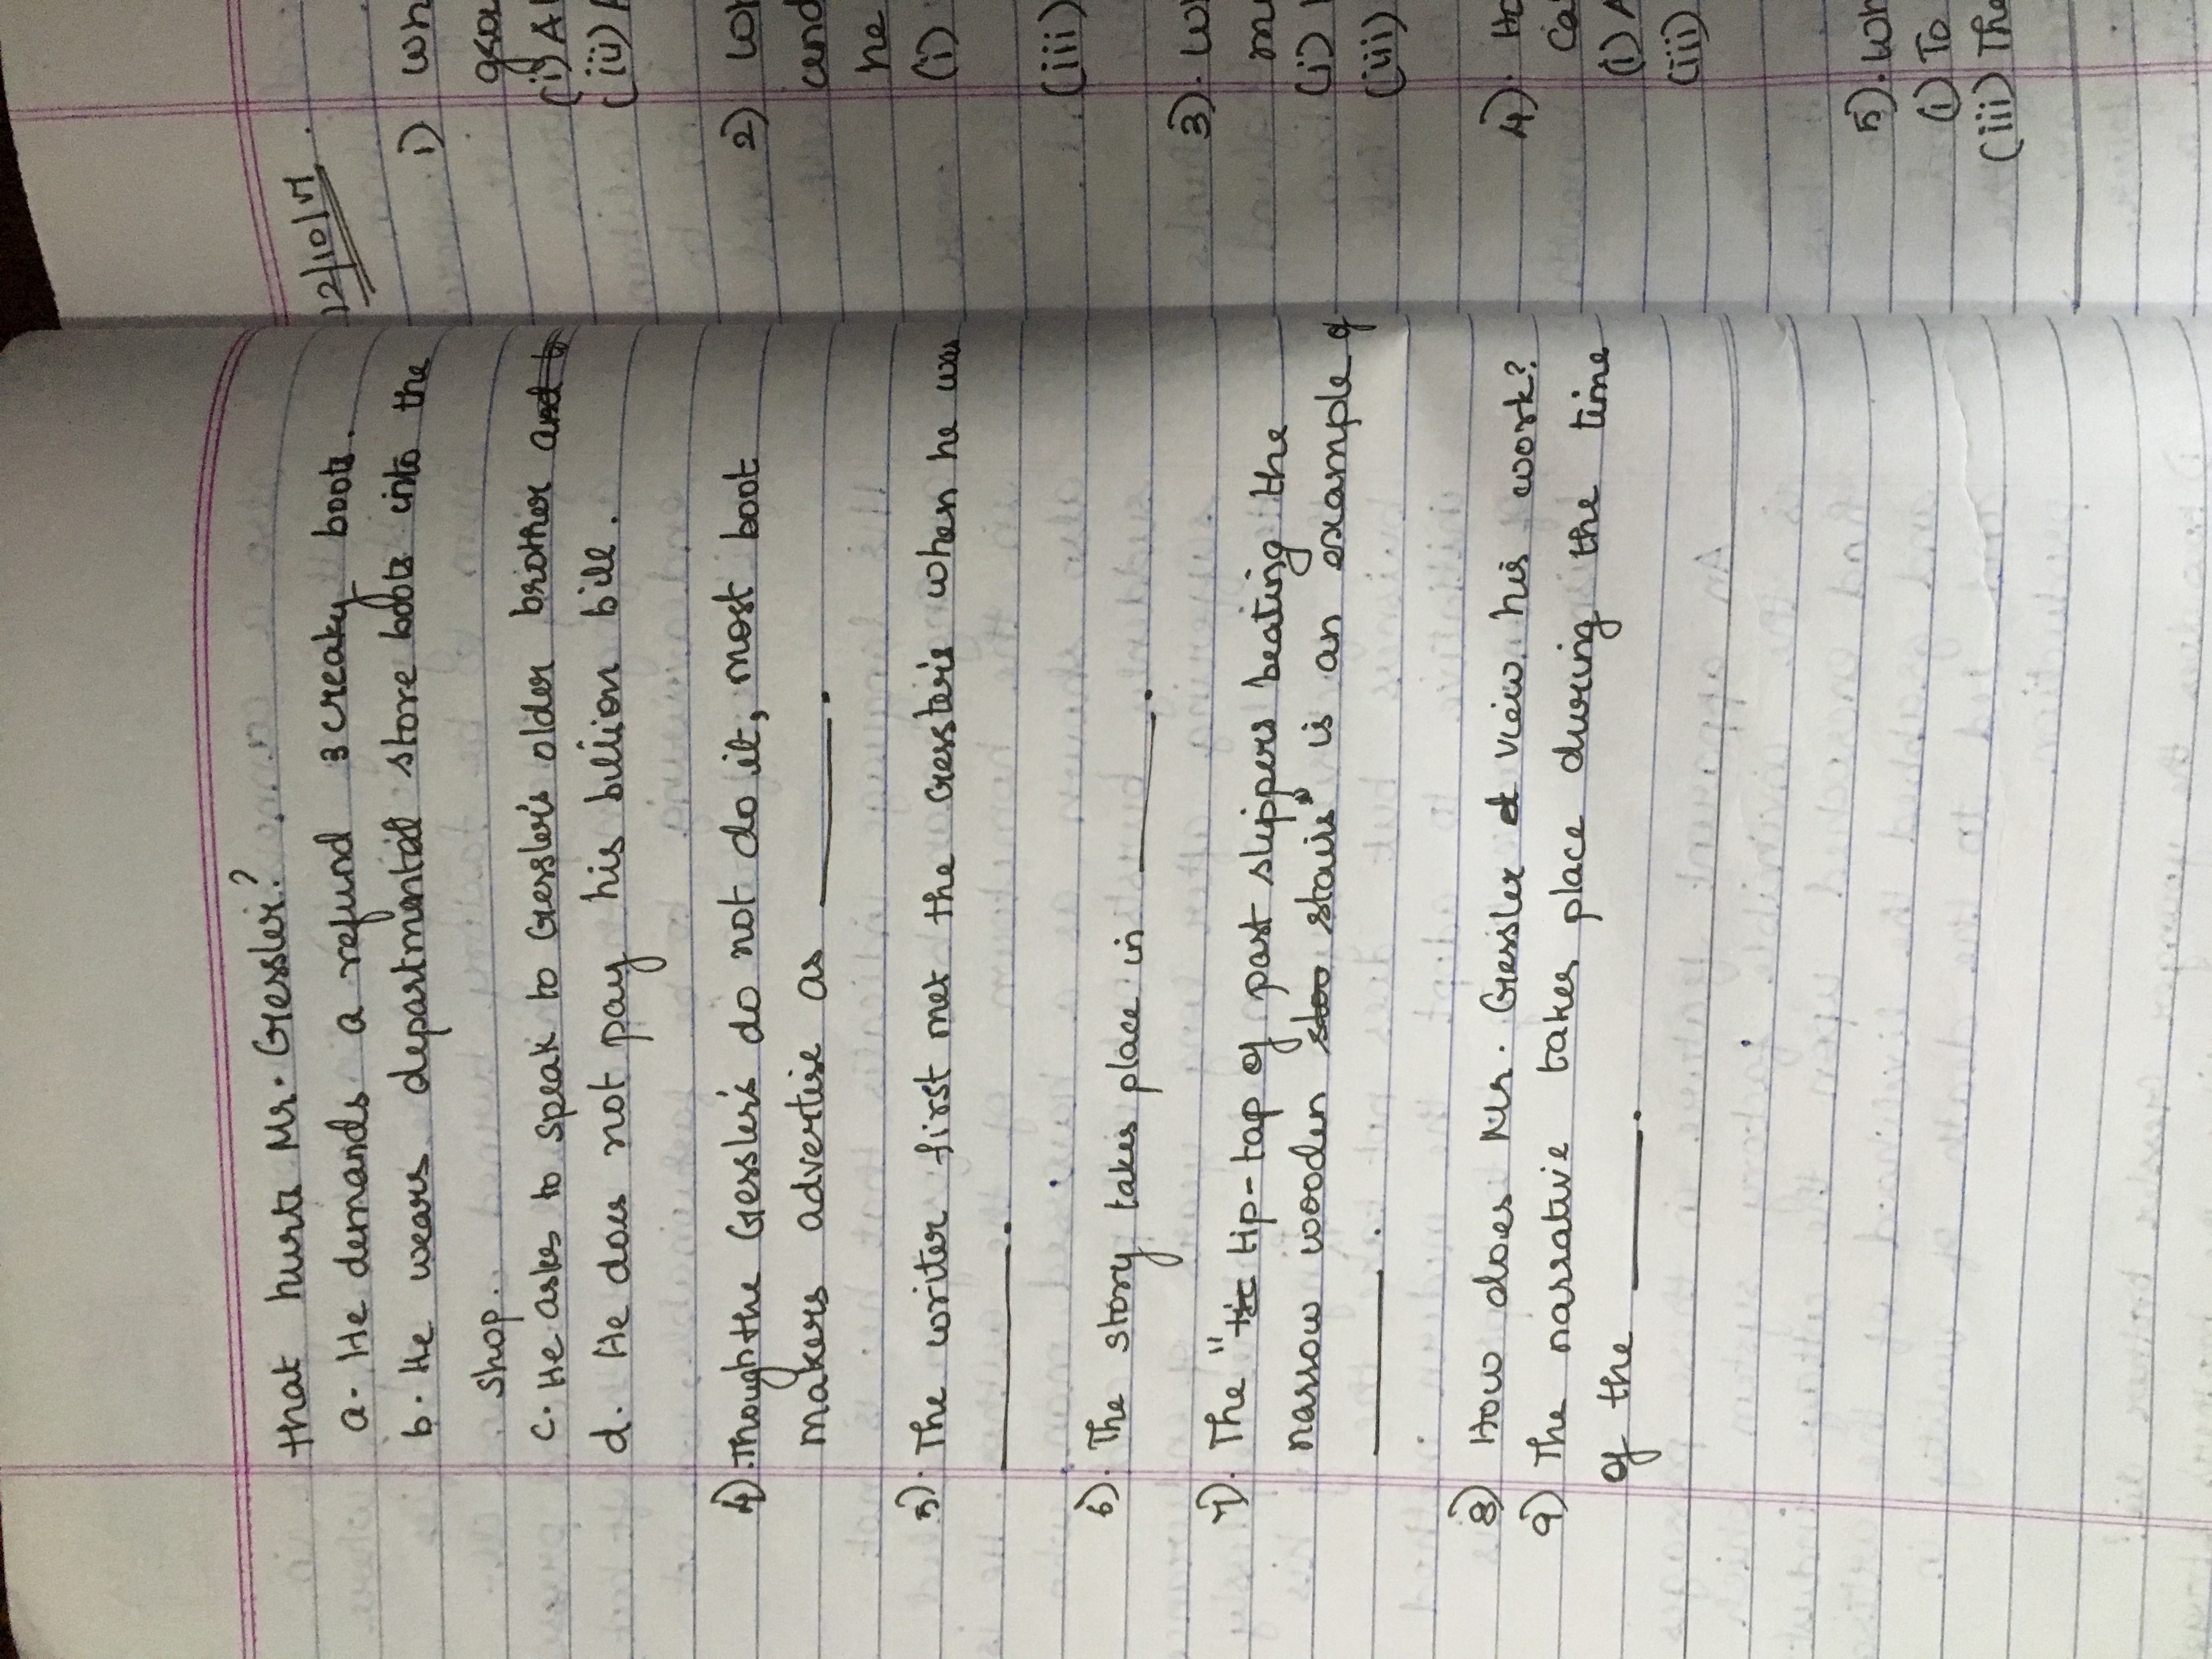 that hurts Mr. Gressler?
a. He demands a refund 3 creaky boots.
b. He wears departmental store boots into the
shop.
c. He asks to speak to Gressler's older brother
d. He does not pay his billion bill.
4) Though the Gressler's do not do it, most boot
makers advertise as ______.
5). The writer first met the Gressler's when he was
______.
6). The story takes place in ______.
7). The "tic tip-tap of past slippers beating the
narrow wooden stoo stairs" is an example of
______.
8) How does Mr. Gressler view his work?
9) The narrative takes place during the time
of the ______.
12/10/17
1)
(i)
(ii)
2)
and
he
(i)
(iii)
3).
(i)
(iii)
4).
(i)
(iii)
5).
(i) To
(iii) The